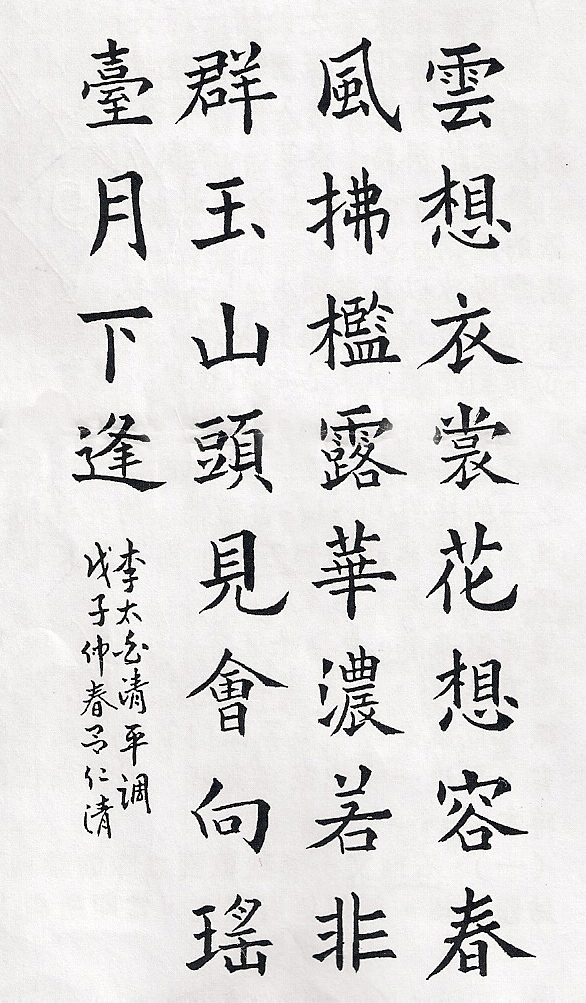 雲想衣裳花想容春
風拂檻露華濃若非
群玉山頭見會向瑤
臺月下逢
李太白清平调
戊子仲春吕仁清